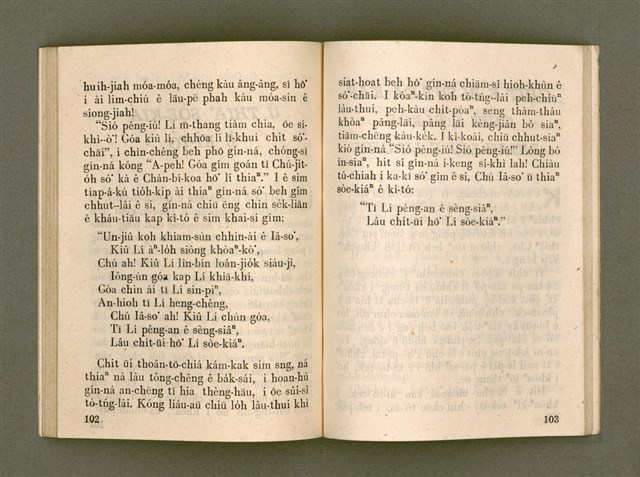 huih-jiah móa-móa, chéng kàu âng-âng, sī hō͘
i ài lim-chiú ê lāu-pē phah kàu móa-sin ê
siong-jiah!
“Sió pêng-iú! Lí m-thang tiàm chia, ōe sí-
khì--ò! Góa kiù lí, chhōa lí lī-khui chit só͘-
chāi”, i chìn-chêng beh phō gín-ná, chóng-sī
gín-ná kóng “A-peh! Góa gím goán tī Chú-jit-
o̍h só͘ kà ê Chàn-bí-koa hō͘ lí thiaⁿ.” I ê sim
tiap-á-kú tio̍h-kip ài thiaⁿ gín-ná só͘ beh gîm
chhut--lâi ê si, gín-ná chiū ēng chin se̍k-liān
ê kháu-tiāu kap kî-tó ê sim khai-sí gîm:
“Un-jiû koh khiam-sùn chhin-ài ê Iâ-so͘,
Kiû Lí àⁿ-lo̍h siòng khòaⁿ-kò͘,
Chú ah! Kiû Lí lîn-bín loán-jio̍k siáu-jî,
Iông-ún góa kap Lí khiā-khí,
Góa chin ài tī Lí sin-piⁿ,
An-hioh tī Lí heng-chêng,
Chú Iâ-so͘ ah! Kiû Lí chún góa,
Tī Lí pêng-an ê sèng-siâⁿ,
Lâu chi̍t-ūi hō͘ Lí sòe-kiáⁿ.
Chit ūi thoân-tō-chiá kám-kak sim sng, ná
thiaⁿ ná lâu tông-chêng ê ba̍k-sái, i hoan-hù
gín-ná an-chēng tī hia thèng-hāu, i ōe súi-sî
tò-tńg-lâi. Kóng liáu-aū chiū lo̍h lâu-thui khì
102
siat-hoat beh hō͘ gín-ná chiām-sî hioh-khùn ê
só͘-chāi. I kóaⁿ-kín koh tò-tńg--lâi peh-chiūⁿ
lâu-thui, peh-kàu chi̍t-pòaⁿ, seng thàm-thâu
khòaⁿ pâng-lāi, pâng lāi kèng-jiân bô siaⁿ,
tiām-chēng kàu-ke̍k. I kî-koài, chiū chhut-siaⁿ
kiò gín-ná “Sió pêng-iú! Sió pêng-iú!” Lóng bô
ìn-siaⁿ, hit sî gín-ná í-keng sí-khì lah! Chiàu
tú-chiah i ka-kī só͘ gîm ê si, Chú Iâ-so͘ ū thiaⁿ
sòe-kiáⁿ ê kî-tó:
“Tī Lí pêng-an ê sèng-siâⁿ,
Lâu chi̍t-ūi hō͘ Lí sòe-kiáⁿ.”
103